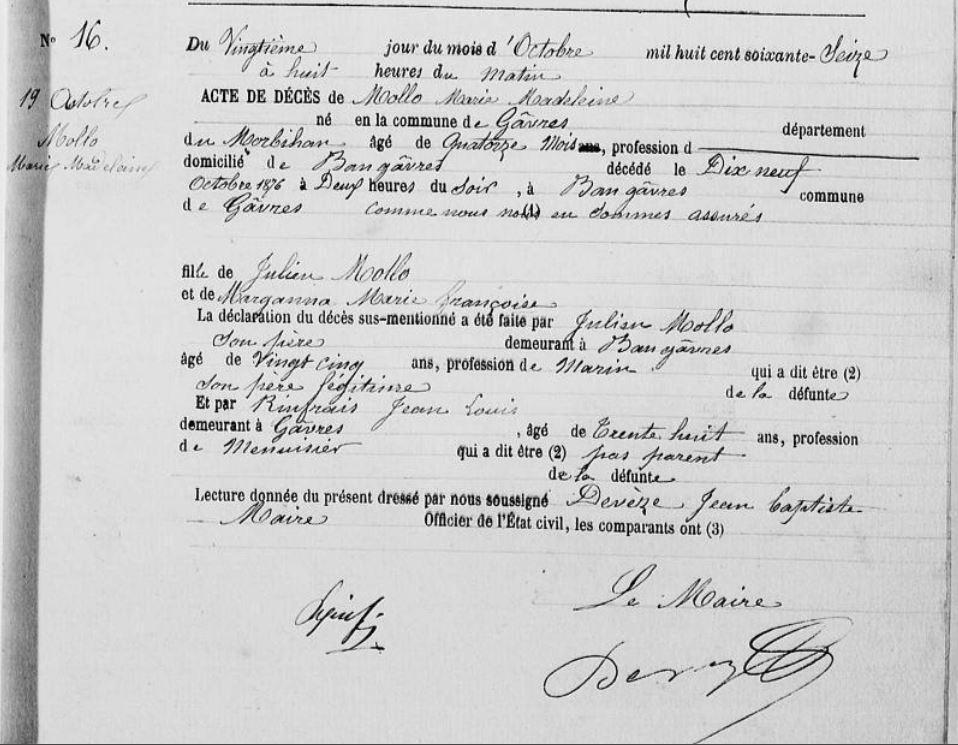 N° 16.
19 Octobre
Mollo
Marie Madelaine
Du Vingtième jour du mois d'Octobre mil huit cent soixante-Seize
à huit heures du matin
ACTE DE DÉCÈS de Mollo Marie Madeleine
né en la commune de Gâvres département
du Morbihan âgé de Quatorze Mois ans, profession d
domicilié de Ban gâvres décédé le Dix neuf
Octobre 1876 à Deux heures du Soir, à Ban gâvres commune
de Gâvres comme nous nous (1) en sommes assurés
fille de Julien Mollo
et de Marganna Marie françoise
La déclaration du décès sus-mentionné a été faite par Julien Mollo
Son père demeurant à Ban gâvres
âgé de Vingt cinq ans, profession de Marin qui a dit être (2)
Son père légitime de la défunte
Et par Rinfrais Jean Louis
demeurant à Gâvres, âgé de Trente huit ans, profession
de Menuisier qui a dit être (2) pas parent
de la défunte
Lecture donnée du présent dressé par nous soussigné Devèze Jean Baptiste
Maire Officier de l'État civil, les comparants ont (3)
Le Maire